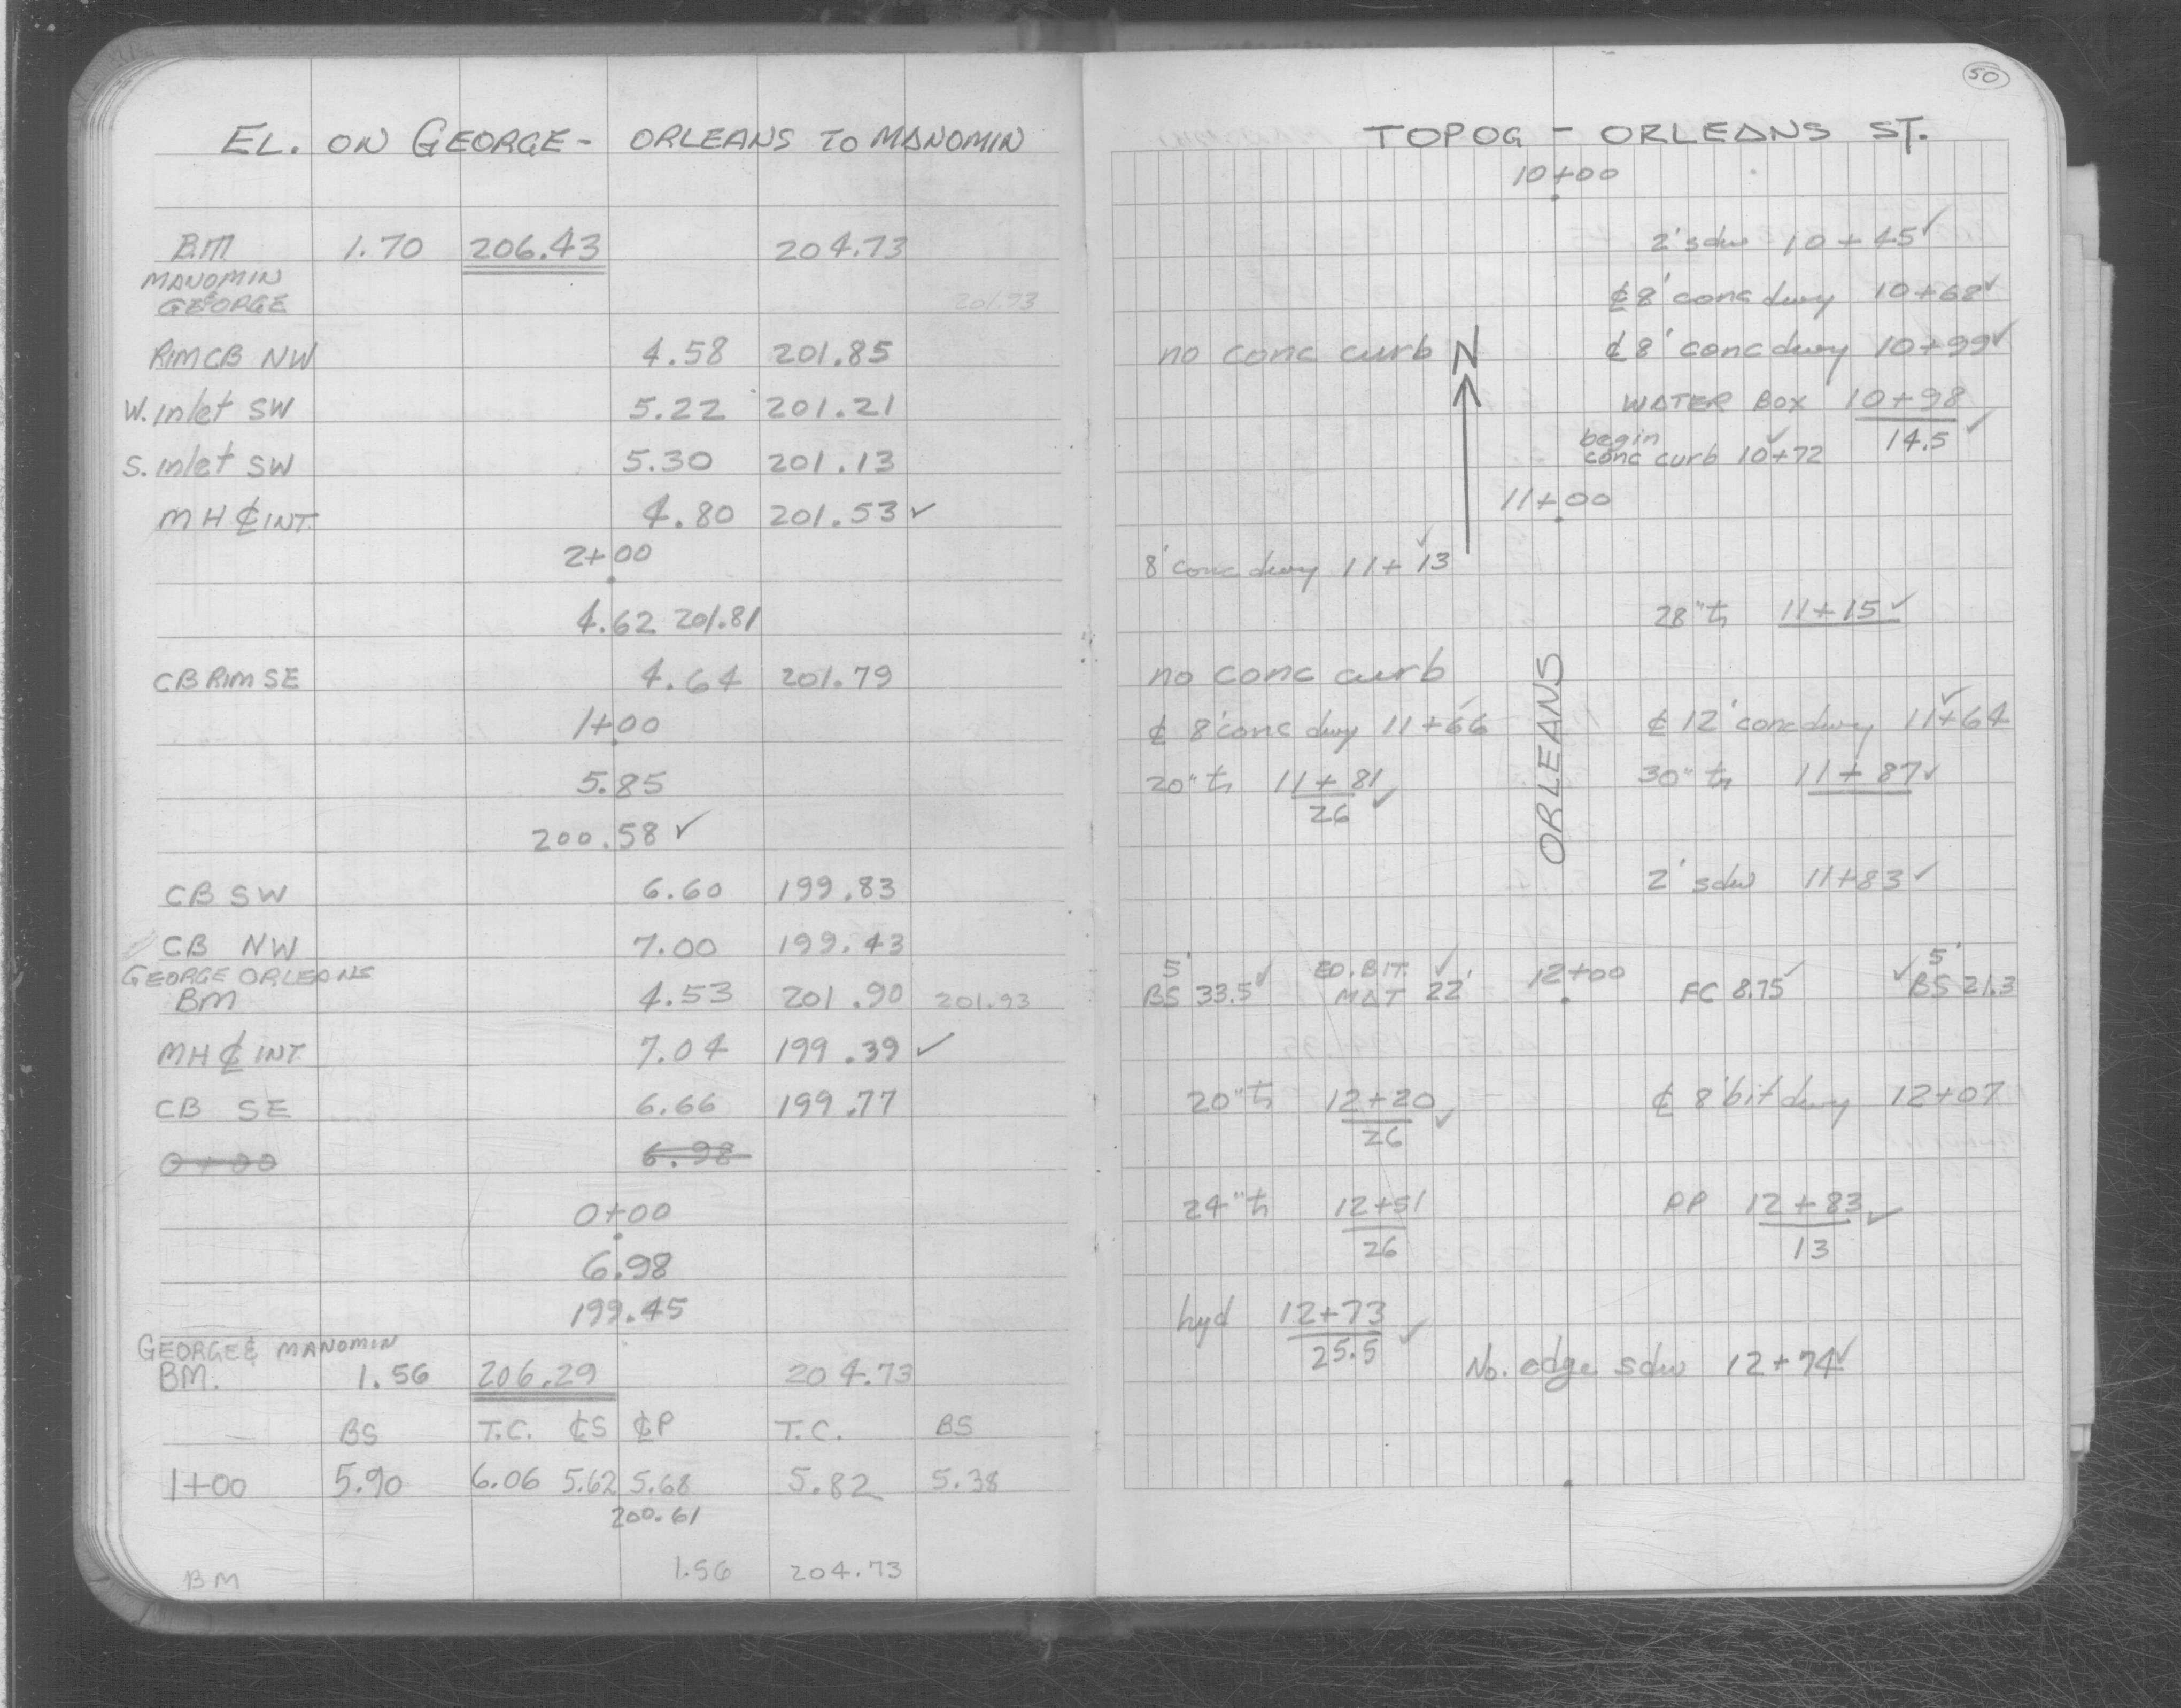 EL. ON GEORGE - ORLEANS TO MANOMIN
BM 1.70 206.43 204.73
MANOMIN
&
GEORGE 201.73
RIM CB NW 4.58 201.85
W. Inlet SW 5.22 201.21
S. Inlet SW 5.30 201.13
MH ℄ INT. 4.80 201.53 ✓
2+00
4.62 201.81
CB RIM SE 4.64 201.79
1+00
5.85
200.58 ✓
CB SW 6.60 199.83
CB NW 7.00 199.43
GEORGE ORLEANS
BM 4.53 201.90 201.93
MH ℄ INT 7.04 199.39 ✓
CB SE 6.66 199.77
0+00 6.98
0+00
6.98
199.45
GEORGE & MANOMIN
BM. 1.56 206.29 204.73
BS T.C. ℄S ℄P T.C. BS
1+00 5.90 6.06 5.62 5.68 5.82 5.38
200.61
BM 1.56 204.73
50
TOPOG - ORLEANS ST.
10+00
2' sdw 10+45 ✓
℄ 8' conc dwy 10+68 ✓
no conc curb N ℄ 8' conc dwy 10+99 ✓
WATER BOX 10+98
14.5 ✓
begin
conc curb 10+72 ✓
11+00
8' conc dwy 11+13 ✓
28" tr 11+15 ✓
no conc curb
ORLEANS
℄ 8' conc dwy 11+66 ✓ ℄ 12' conc dwy 11+64 ✓
20" tr 11+81 30" tr 11+87 ✓
26 ✓
2' sdw 11+83 ✓
5' ED. BIT. ✓ 12+00 5'
BS 33.5 ✓ MAT 22' FC 8.75 ✓ ✓ BS 21.3
20" tr 12+20 ℄ 8' bit dwy 12+07
26 ✓
24" tr 12+51 PP 12+83 ✓
26 13
hyd 12+73
25.5 ✓
No. edge sdw 12+74 ✓